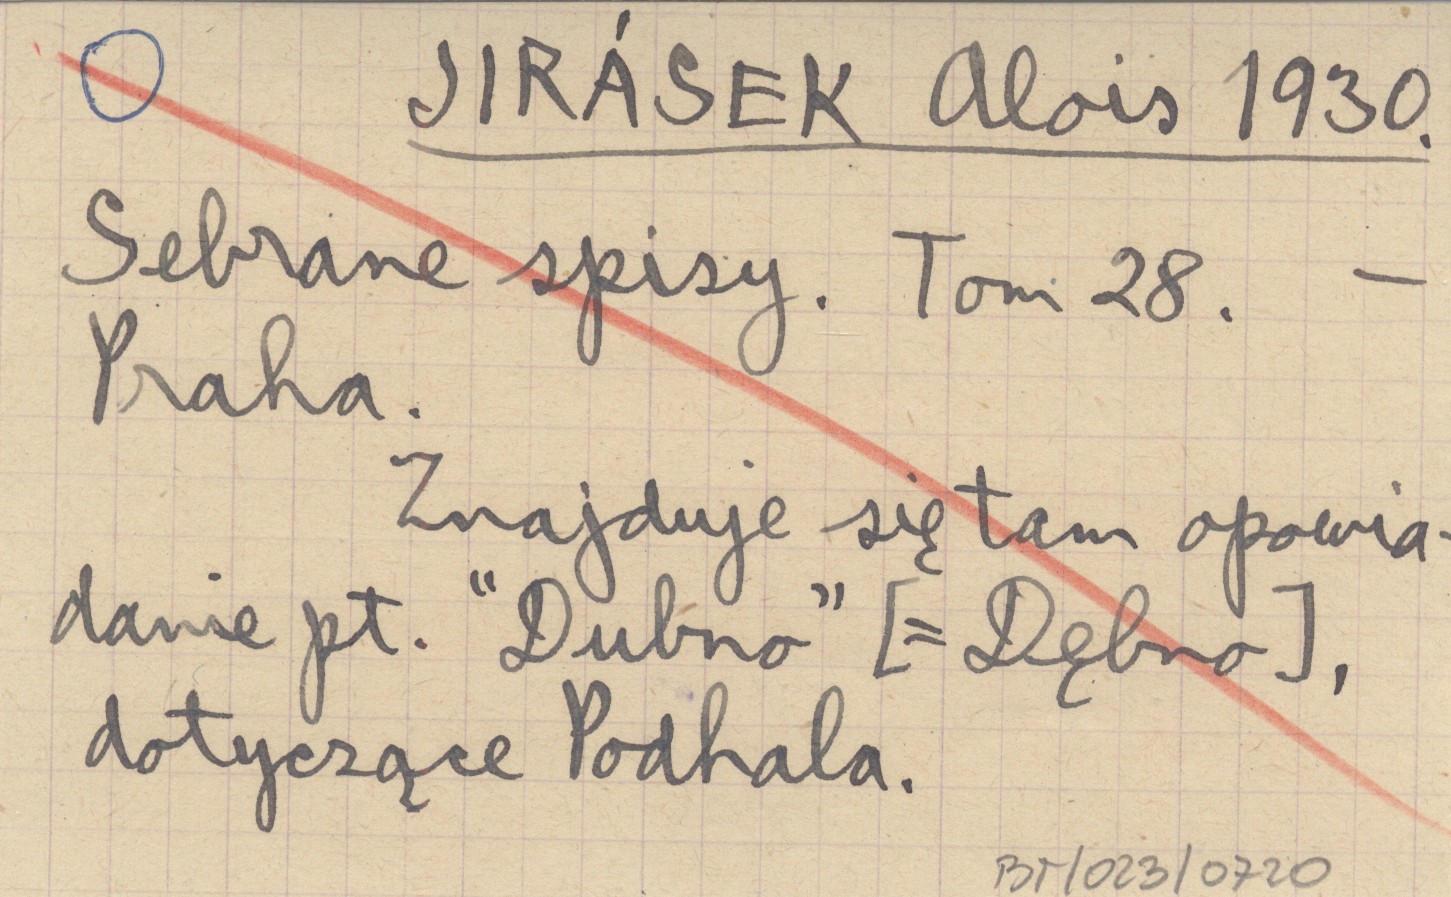 JIRÁSEK Alois 1930.
Sebrane spisy. Tom 28. —
Praha.
Znajduje się tam opowia-
danie pt. “Dubno” [= Dębno],
dotyczące Podhala.
BT/023/0720